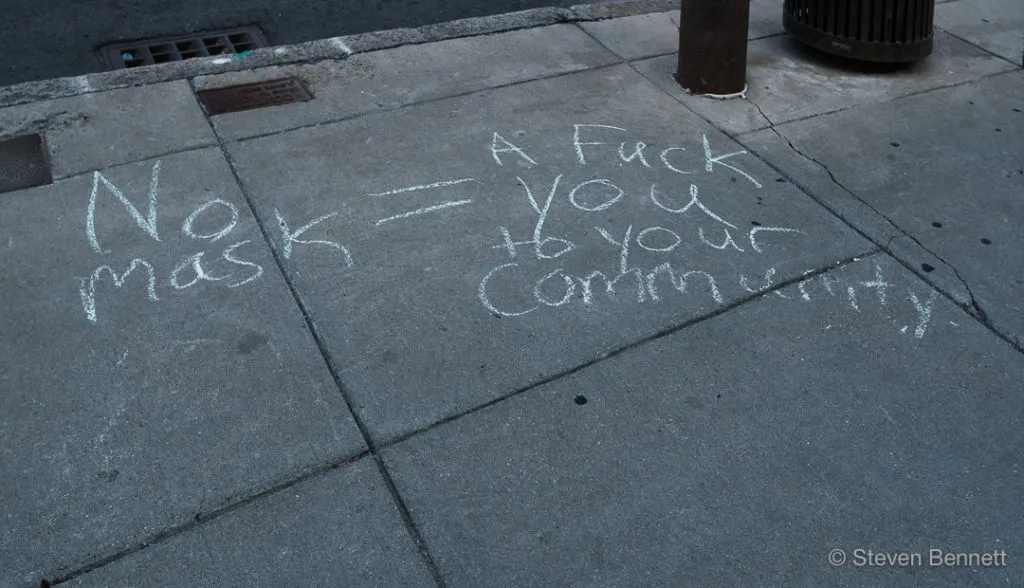 No
mask
=
A Fuck
you
to your
Community
© Steven Bennett